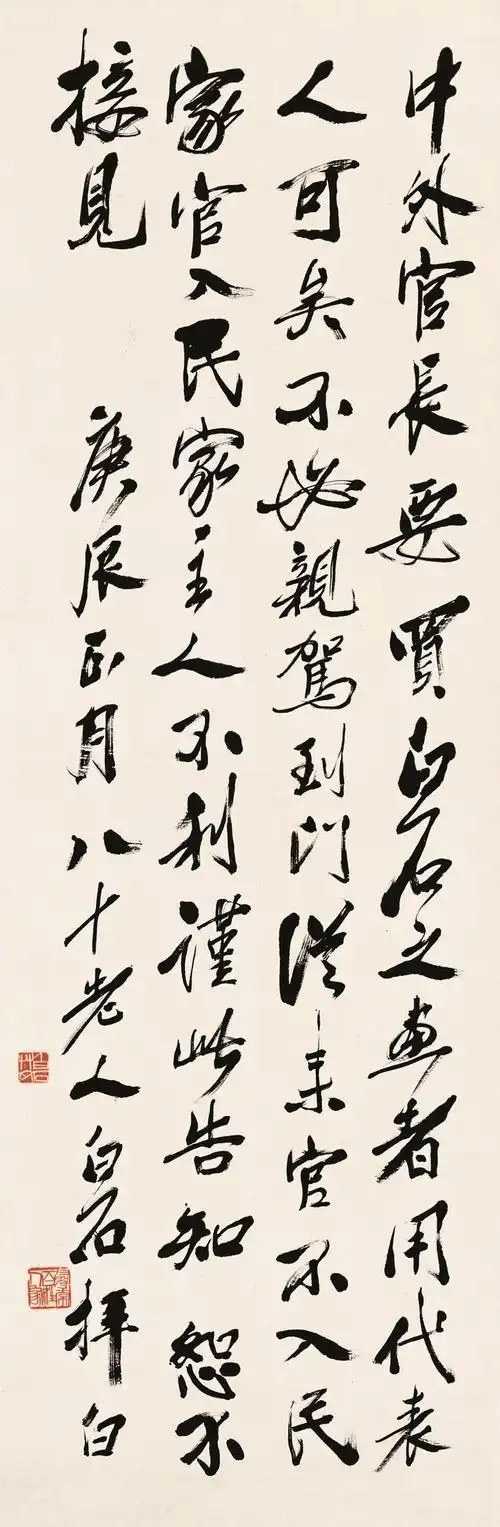 中外官長要買白石之畫者用代表
人可矣不必親駕到門從来官不入民
家官入民家主人不利謹此告知恕不
接見
庚辰正月八十老人白石拜白